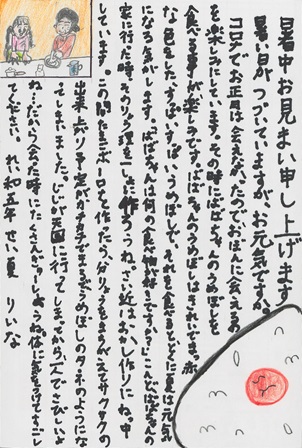 暑中お見まい申し上げます
暑い日がつづいていますが、お元気ですか。
コロナでお正月は会えなかったのでおぼんに会えるの
を楽しみにしています。その時にばばちゃんのうめぼしを
食べる事が楽しみです。ばばちゃんのうめぼしはきれいでまっ赤
な色をした、すっぱいうめぼしで、それを食べるととに夏は元気
になる気がします。ばばちゃんは何の食べ物が好きですか？こんどばばちゃんの
家に行った時、そのりょう理を一しょに作ろうね。さい近はおかし作りにね。中
しています。この間たまごボーロを作ったら、分りょうをまちがえてサクサクの
出来上がり予定がカチカチでまるでうめぼしのタネのようにな
ってしまいました。じいじが天国に行ってしまってから、一人でさびしいよ
ね…だから会た時にたくさん話をしようね。体に気をつけてすごし
てください。れい和五年 せい夏 りいな